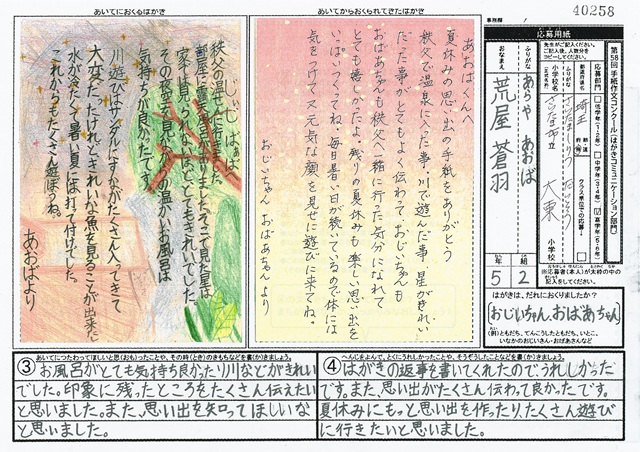 40258
事務欄
応募用紙
第56回 手紙作文コンクール〈はがきコミュニケーション部門〉
応募部門
低学年(1・2年)
中学年(3・4年)
高学年(5・6年)
埼玉
さいたま市立
大東
小学校
ふりがな
あらや あおば
おなまえ
荒屋 蒼羽
5年
2組
はがきは、だれにおくりましたか?
おじいちゃん、おばあちゃん
(例)ともだち、てんこうしたともだち、いとこ、
いなかのおじいさん・おばあさんなど
あいてからおくられてきたはがき
あおばくんへ
夏休みの思い出の手紙をありがとう
秩父で温泉に入った事・川で遊んだ事、星がきれい
だった事がとてもよく伝わって、おじいちゃんも
おばあちゃんも秩父へ一緒に行った気分になれて
とても嬉しかったよ。残りの夏休みも楽しい思い出を
いっぱいつくってね。毎日暑い日が続いているので体には
気をつけて又元気な顔を見せに遊びに来てね。
おじいちゃん おばあちゃんより
あいてにおくるはがき
じぃじ ばぁばへ
秩父の温せんに行きました。
部屋に露天風呂がありました。そこで見た星は
家では見られないほどとてもきれいでした。
その夜空を見ながらの温かいお風呂は
気持ちが良かったです。
川遊びはサンダルにすながたくさん入ってきて
大変だったけれどきれいな魚を見ることが出来た。
水が冷たくて暑い夏には打って付けでした。
これからもたくさん遊ぼうね。
あおばより
③
あいてにつたわってほしいと思(おも)ったことや、その時(とき)のきもちなどを書(か)きましょう。
お風呂がとても気持ち良かったり川などがきれい
でした。印象に残ったところをたくさん伝えたい
と思いました。また、思い出を知ってほしいな
と思いました。
④
へんじをよんで、とくにうれしかったことや、そうぞうしたことなどを書(か)きましょう。
はがきの返事を書いてくれたのでうれしかった
です。また、思い出がたくさん伝わって良かったです。
夏休みにもっと思い出を作ったり、たくさん遊び
に行きたいと思いました。